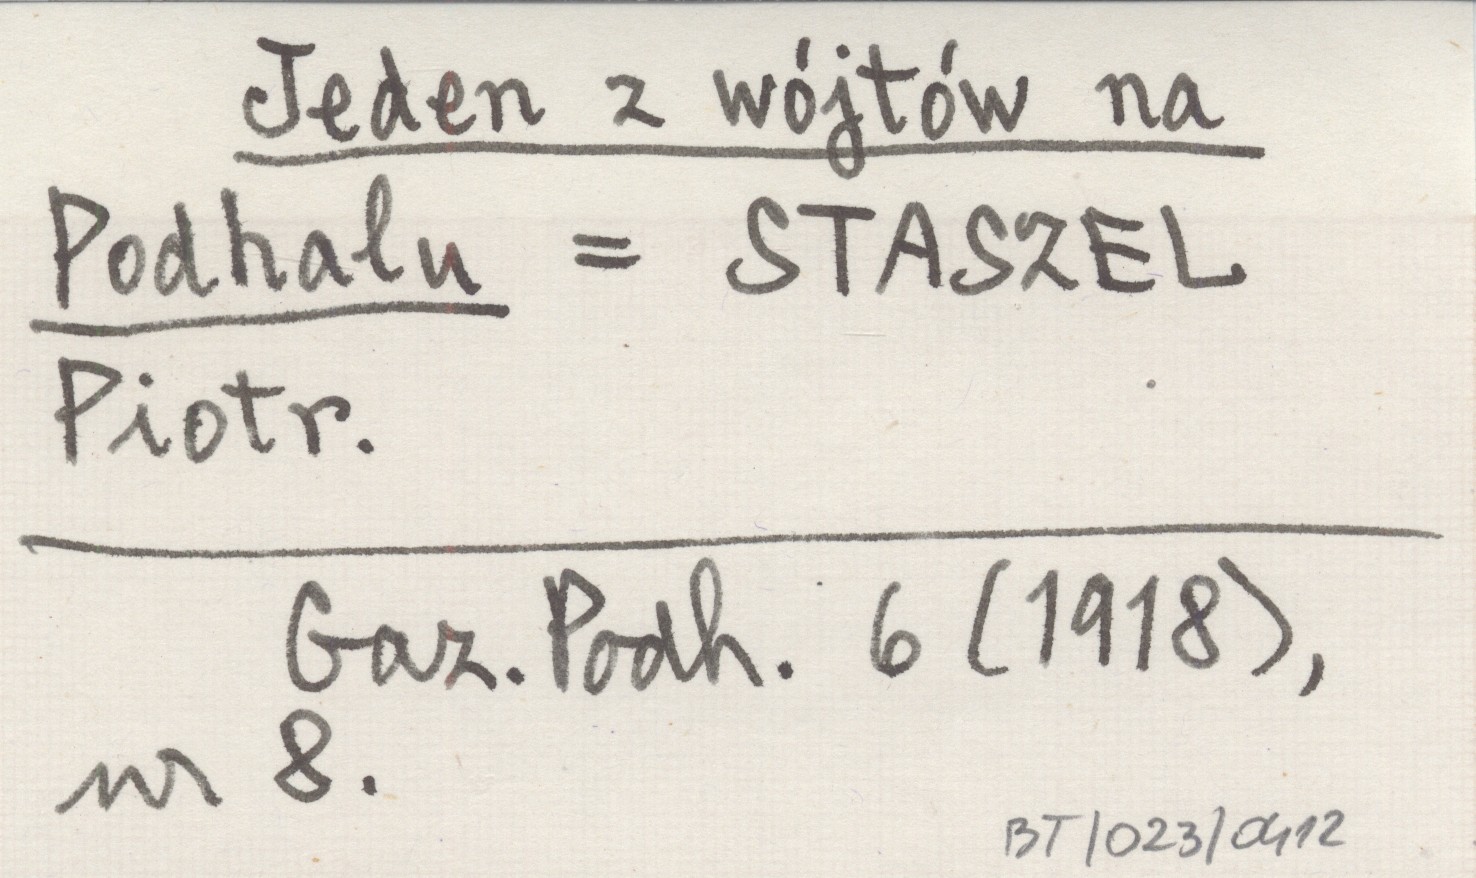 Jeden z wójtów na
Podhalu = STASZEL
Piotr.
Gaz. Podh. 6 (1918),
nr 8.
BT/023/0412